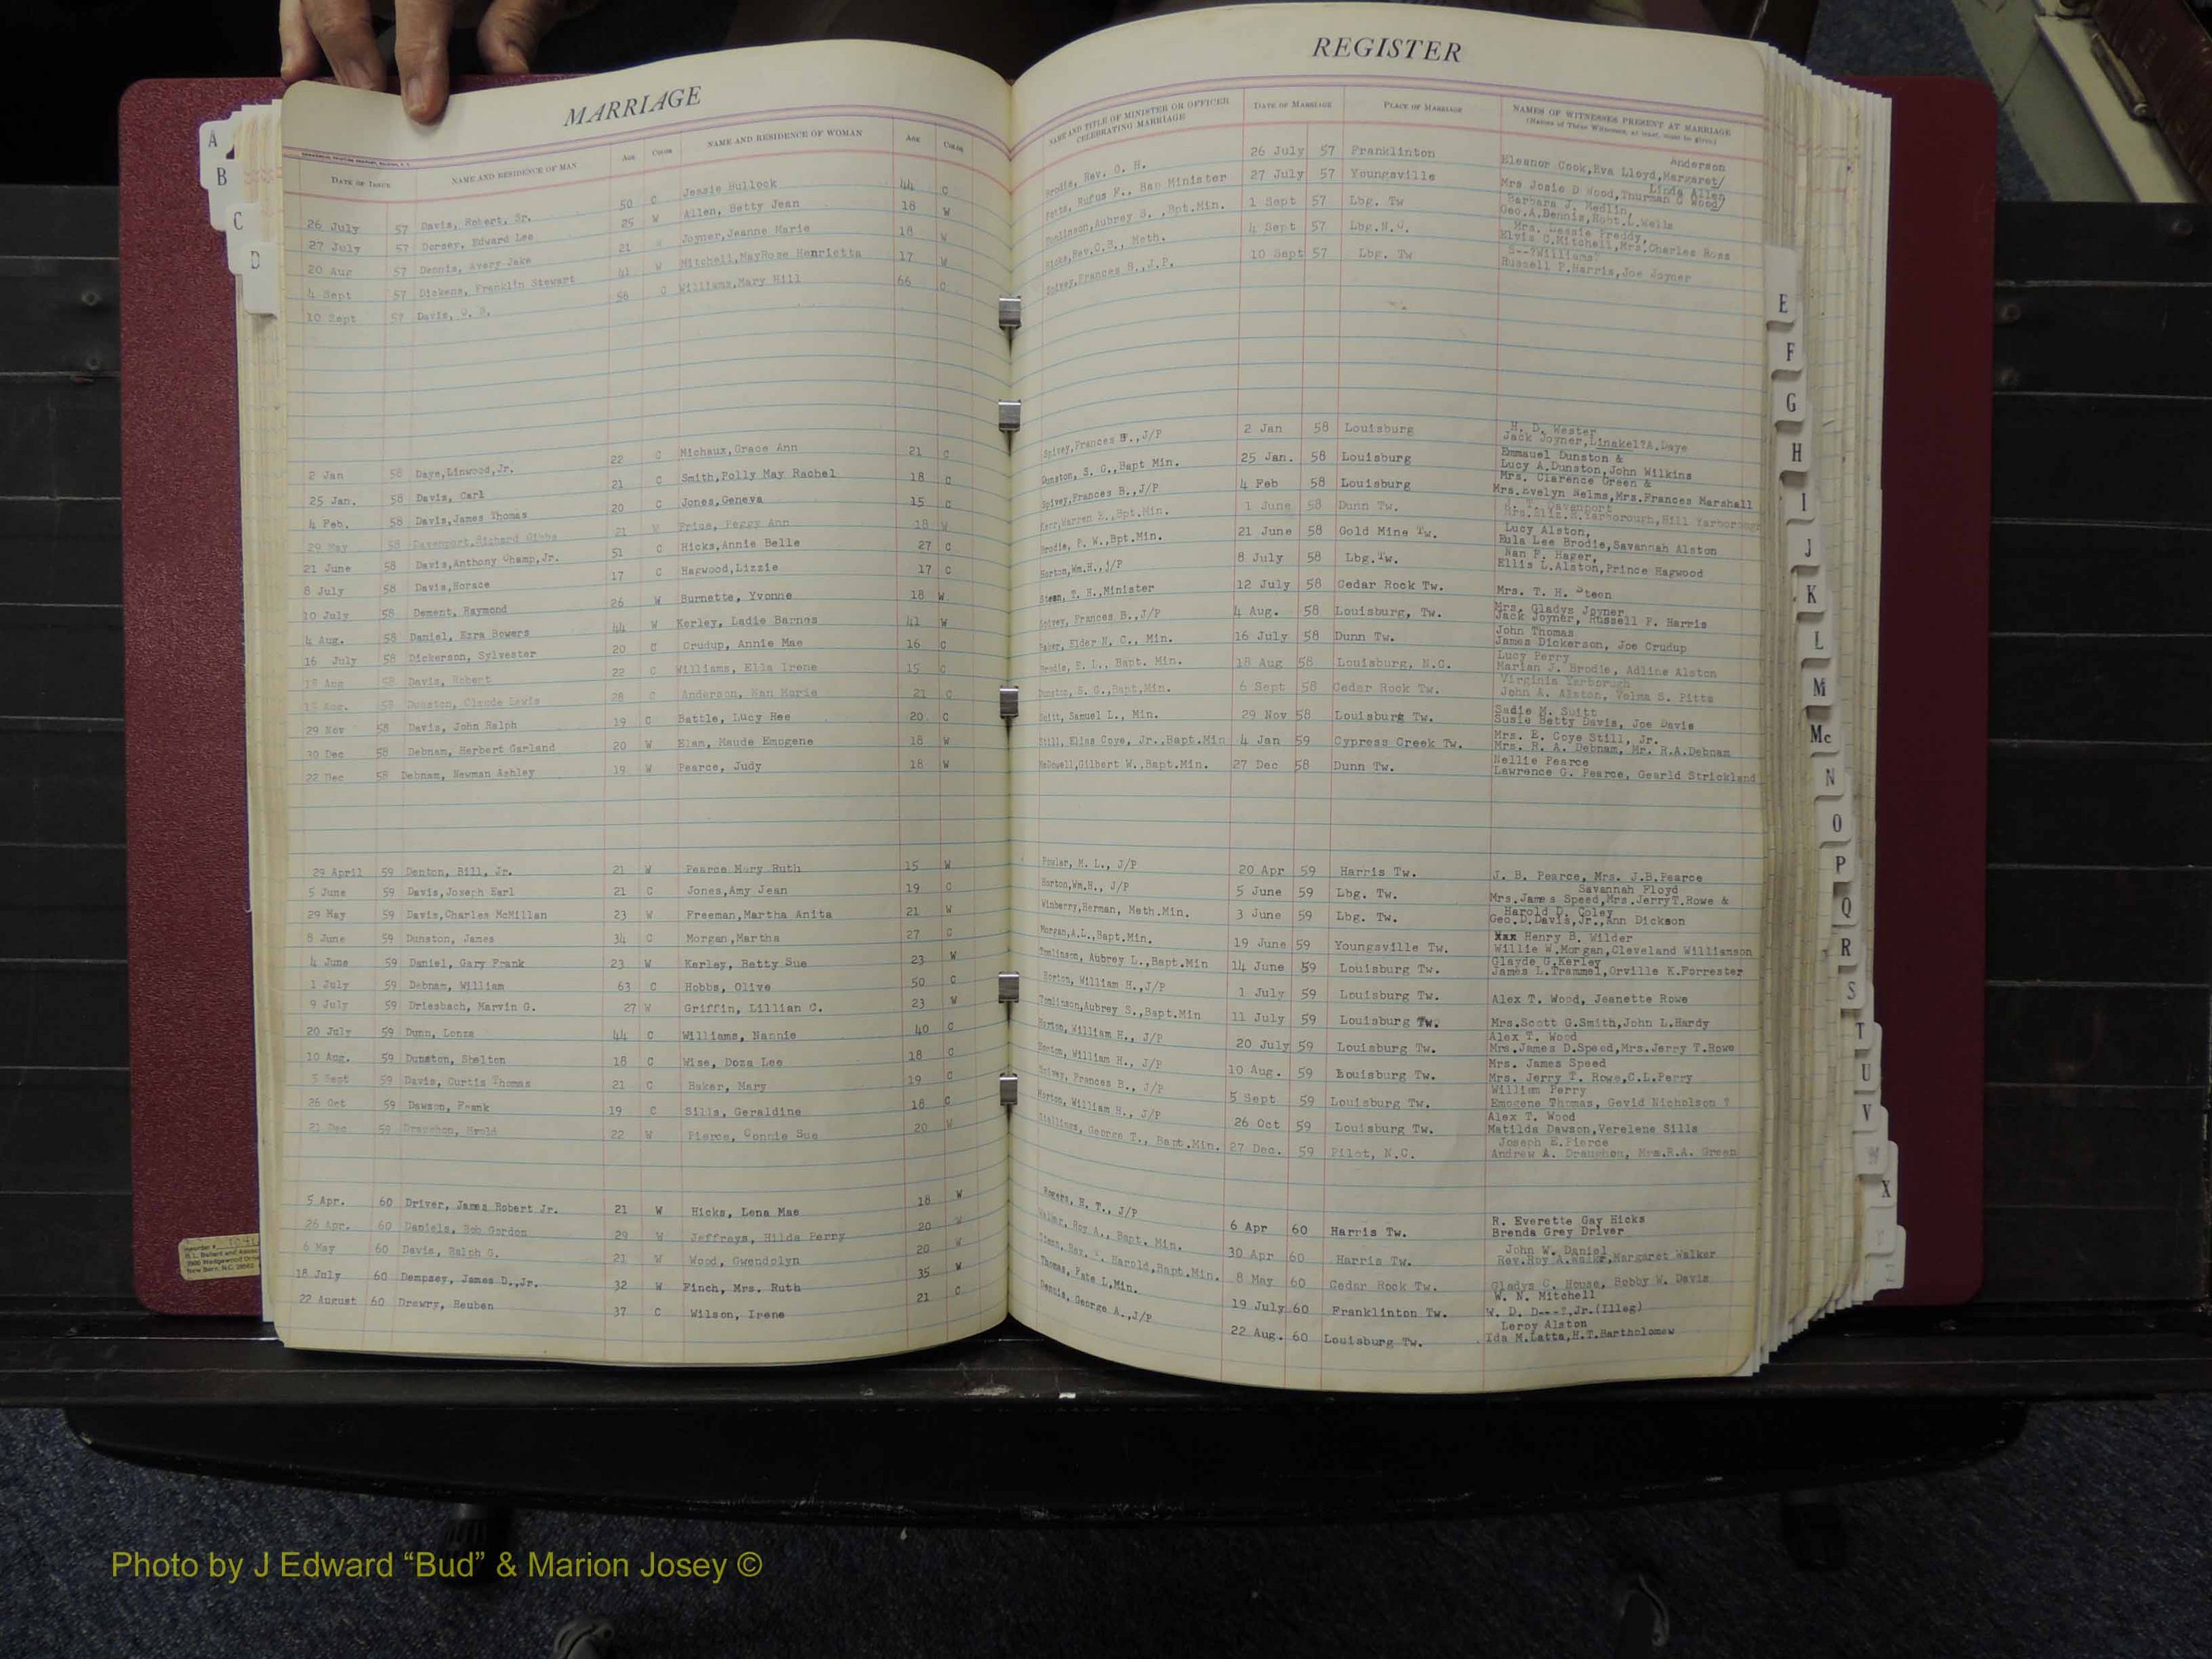 MARRIAGE
DATE OF ISSUE NAME AND RESIDENCE OF MAN AGE COLOR NAME AND RESIDENCE OF WOMAN AGE COLOR
26 July 57 Davis, Robert, Sr. 50 C Jessie Hullock 44 C
27 July 57 Dorsey, Edward Lee 25 W Allen, Betty Jean 18 W
20 Aug 57 Dennis, Avery Jake 21 Joyner,Jeanne Marie 18 W
4 Sept 57 Dickens, Franklin Stewart 41 W Mitchell,MayRose Henrietta 17 W
10 Sept 57 Davis, 56 C Williams,Mary Hill 66 C
2 Jan 58 Daye,Linwood,Jr. 22 C Michaux,Grace Ann 21 C
25 Jan. 58 Davis, Carl 21 C Smith,Polly May Rachel 18 C
4 Feb. 58 Davis,James Thomas 20 C Jones,Geneva 15 C
29 May 58 Davenport,Richard Gibbs 21 W Price, Peggy Ann 18 W
21 June 58 Davis,Anthony Champ,Jr. 51 C Hicks,Annie Belle 27 C
8 July 58 Davis,Horace 17 C Hagwood,Lizzie 17 C
10 July 58 Dement, Raymond 26 W Burnette, Yvonne 18 W
4 Aug. 58 Daniel, Ezra Bowers 44 W Kerley, Ladie Barnes 41 W
16 July 58 Dickerson, Sylvester 20 C Crudup, Annie Mae 16 C
18 Aug 58 Davis, Robert 22 C Williams, Ella Irene 15 C
Aug. 58 Dunston, Claude Lewis 28 C Anderson, Nan Marie 21 C
29 Nov 58 Davis, John Ralph 19 C Battle, Lucy Hee 20 C
30 Dec 58 Debnam, Herbert Garland 20 W Elam, Maude Emogene 18 W
22 Dec 58 Debnam, Newman Ashley 19 W Pearce, Judy 18 W
29 April 59 Denton, Bill, Jr. 21 W Pearce Mary Ruth 15 W
5 June 59 Davis,Joseph Earl 21 C Jones,Amy Jean 19 C
29 May 59 Davis,Charles McMillan 23 W Freeman,Martha Anita 21 W
8 June 59 Dunston, James 34 C Morgan,Martha 27 C
4 June 59 Daniel, Gary Frank 23 W Kerley, Betty Sue 23 W
1 July 59 Debnam, William 63 C Hobbs, Olive 50 C
9 July 59 Driesbach, Marvin G. 27 W Griffin, Lillian C. 23 W
20 July 59 Dunn, Lonza 44 C Williams, Nannie 40 C
10 Aug. 59 Dunston, Shelton 18 C Wise, Doza Lee 18 C
5 Sept 59 Davis, Curtis Thomas 21 C Baker, Mary 19 C
26 Oct 59 Dawson, Frank 19 C Sills, Geraldine 18 C
21 Dec 59 Draughon, Hrold 22 W Pierce, Connie Sue 20 W
5 Apr. 60 Driver, James Robert Jr. 21 W Hicks, Lena Mae 18 W
26 Apr. 60 Daniels, Bob Gordon 29 W Jeffreys, Hilda Perry 20 W
6 May 60 Davis, Ralph G. 21 W Wood, Gwendolyn 20 W
18 July 60 Dempsey, James D.,Jr. 32 W Finch, Mrs. Ruth 35 W
22 August 60 Drewry, Reuben 37 C Wilson, Irene 21 C
REGISTER
NAME AND TITLE OF MINISTER OR OFFICER CELEBRATING MARRIAGE DATE OF MARRIAGE PLACE OF MARRIAGE NAMES OF WITNESSES PRESENT AT MARRIAGE
(Names of Three Witnesses, at least, must be given)
Anderson
Brodie, Rev. O. H. 26 July 57 Franklinton Eleanor Cook,Eva Lloyd,Margaret/
Linda Allen
Potts, Rufus F., Bap Minister 27 July 57 Youngsville Mrs Josie D Wood,Thurman C Wood/
Barbara J. Medlin,
Tomlinson,Aubrey S. ,Bpt.Min. 1 Sept 57 Lbg. Tw Geo.A.Dennis,Hobt.L.Wells
Mrs. Bessie Freddy,
Hicks,Rev.C.B., Meth. 4 Sept 57 Lbg.N.C. Elvis C.Mitchell,Mrs.Charles Ross
S--?Williams
Spivey,Frances B.,J.P. 10 Sept 57 Lbg. Tw Russell P.Harris,Joe Joyner
H. D. Wester
Spivey,Frances B.,J/P 2 Jan 58 Louisburg Jack Joyner,Linakel?A.Daye
Emmauel Dunston &
Dunston, S. G.,Bapt Min. 25 Jan. 58 Louisburg Lucy A.Dunston,John Wilkins
Mrs. Clarence Green &
Spivey,Frances B.,J/P 4 Feb 58 Louisburg Mrs.Evelyn Nelms,Mrs.Frances Marshall
Davenport
Kerr,Warren E.,Bpt.Min. 1 June 58 Dunn Tw. Mrs.Eliz.R.Yarborough,Hill Yarborough
Lucy Alston,
Brodie, P. W.,Bpt.Min. 21 June 58 Gold Mine Tw. Eula Lee Brodie,Savannah Alston
Nan P. Hager,
Horton,Wm.H.,j/P 8 July 58 Lbg.Tw. Ellis L.Alston,Prince Hagwood
Steen, T. H.,Minister 12 July 58 Cedar Rock Tw. Mrs. T. H. Steen
Mrs. Gladys Joyner
Spivey, Frances B.,J/P 4 Aug. 58 Louisburg, Tw. Jack Joyner, Russell P. Harris
John Thomas
Baker, Elder N. C., Min. 16 July 58 Dunn Tw. James Dickerson, Joe Crudup
Lucy Perry
Brodie, E. L., Bapt. Min. 18 Aug 58 Louisburg, N.C. Marian J. Brodie, Adline Alston
Virginia Yarborough
Dunston, S. G.,Bapt,Min. 6 Sept 58 Cedar Rock Tw. John A. Alston, Velma S. Pitts
Sadie M. Suitt
Suitt, Samuel L., Min. 29 Nov 58 Louisburg Tw. Susie Betty Davis, Joe Davis
Mrs. E. Coye Still, Jr.
Still, Elias Coye, Jr.,Bapt.Min 4 Jan 59 Cypress Creek Tw. Mrs. R. A. Debnam, Mr. R.A.Debnam
Nellie Pearce
McDowell,Gilbert W.,Bapt.Min. 27 Dec 58 Dunn Tw. Lawrence G. Pearce, Gearld Strickland
Fowler, M. L., J/P 20 Apr 59 Harris Tw. J. B. Pearce, Mrs. J.B.Pearce
Savannah Floyd
Horton,Wm.H., J/P 5 June 59 Lbg. Tw. Mrs.James Speed,Mrs.JerryT.Rowe &
Harold D. Coley
Winberry,Herman, Meth.Min. 3 June 59 Lbg. Tw. Geo.D.Davis,Jr.,Ann Dickson
Henry B. Wilder
Morgan,A.L.,Bapt.Min. 19 June 59 Youngsville Tw. Willie W.Morgan,Cleveland Williamson
Glayde G.Kerley
Tomlinson, Aubrey L.,Bapt.Min 14 June 59 Louisburg Tw. James L.Trammel,Orville K.Forrester
Horton, William H.,J/P 1 July 59 Louisburg Tw. Alex T. Wood, Jeanette Rowe
Tomlinson,Aubrey S.,Bapt.Min 11 July 59 Louisburg Tw. Mrs.Scott G.Smith,John L.Hardy
Alex T. Wood
Horton, William H., J/P 20 July 59 Louisburg Tw. Mrs.James D.Speed,Mrs.Jerry T.Rowe
Mrs. James Speed
Horton, William H., J/P 10 Aug. 59 Louisburg Tw. Mrs. Jerry T. Rowe,C.L.Perry
William Perry
Spivey, Frances B., J/P 5 Sept 59 Louisburg Tw. Emogene Thomas, Gevid Nicholson ?
Alex T. Wood
Horton, William H., J/P 26 Oct 59 Louisburg Tw. Matilda Dawson,Verelene Sills
Joseph E.Pierce
Stallings, George T., Bapt.Min. 27 Dec. 59 Pilot, N.C. Andrew A. Draughon, Mrs.R.A. Green
R. Everette Gay Hicks
Rogers, H. T., J/P 6 Apr 60 Harris Tw. Brenda Grey Driver
John W. Daniel
Walker, Roy A., Bapt. Min. 30 Apr 60 Harris Tw. Rev.Roy A.Walkr,Margaret Walker
Harold,Bapt.Min. 8 May 60 Cedar Rock Tw. Gladys C. House, Bobby W. Davis
W. N. Mitchell
Thomas, Pate L,Min. 19 July 60 Franklinton Tw. W. D. D---?,Jr.(Illeg)
Leroy Alston
Dennis, George A.,J/P 22 Aug. 60 Louisburg Tw. Ida M.Latta,H.T.Bartholomew
A
B
C
D
E
F
G
H
I
J
K
L
M
Mc
N
O
P
Q
R
S
T
U
V
W
X
Y
Z
Photo by J Edward “Bud” & Marion Josey ©